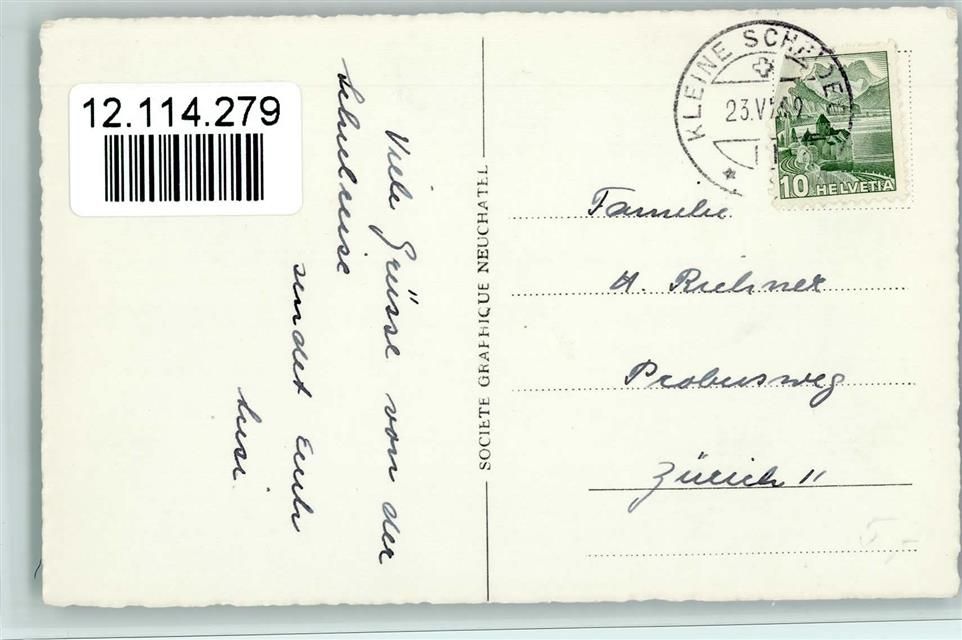 12.114.279
Viele Grüsse von der
Schulreise
sendet Euch
Susi
SOCIETE GRAPHIQUE NEUCHATEL
KLEINE SCHEIDEGG
23.VI.49
10 HELVETIA
Familie
H. Richner
Probusweg
Zürich 11
5,-